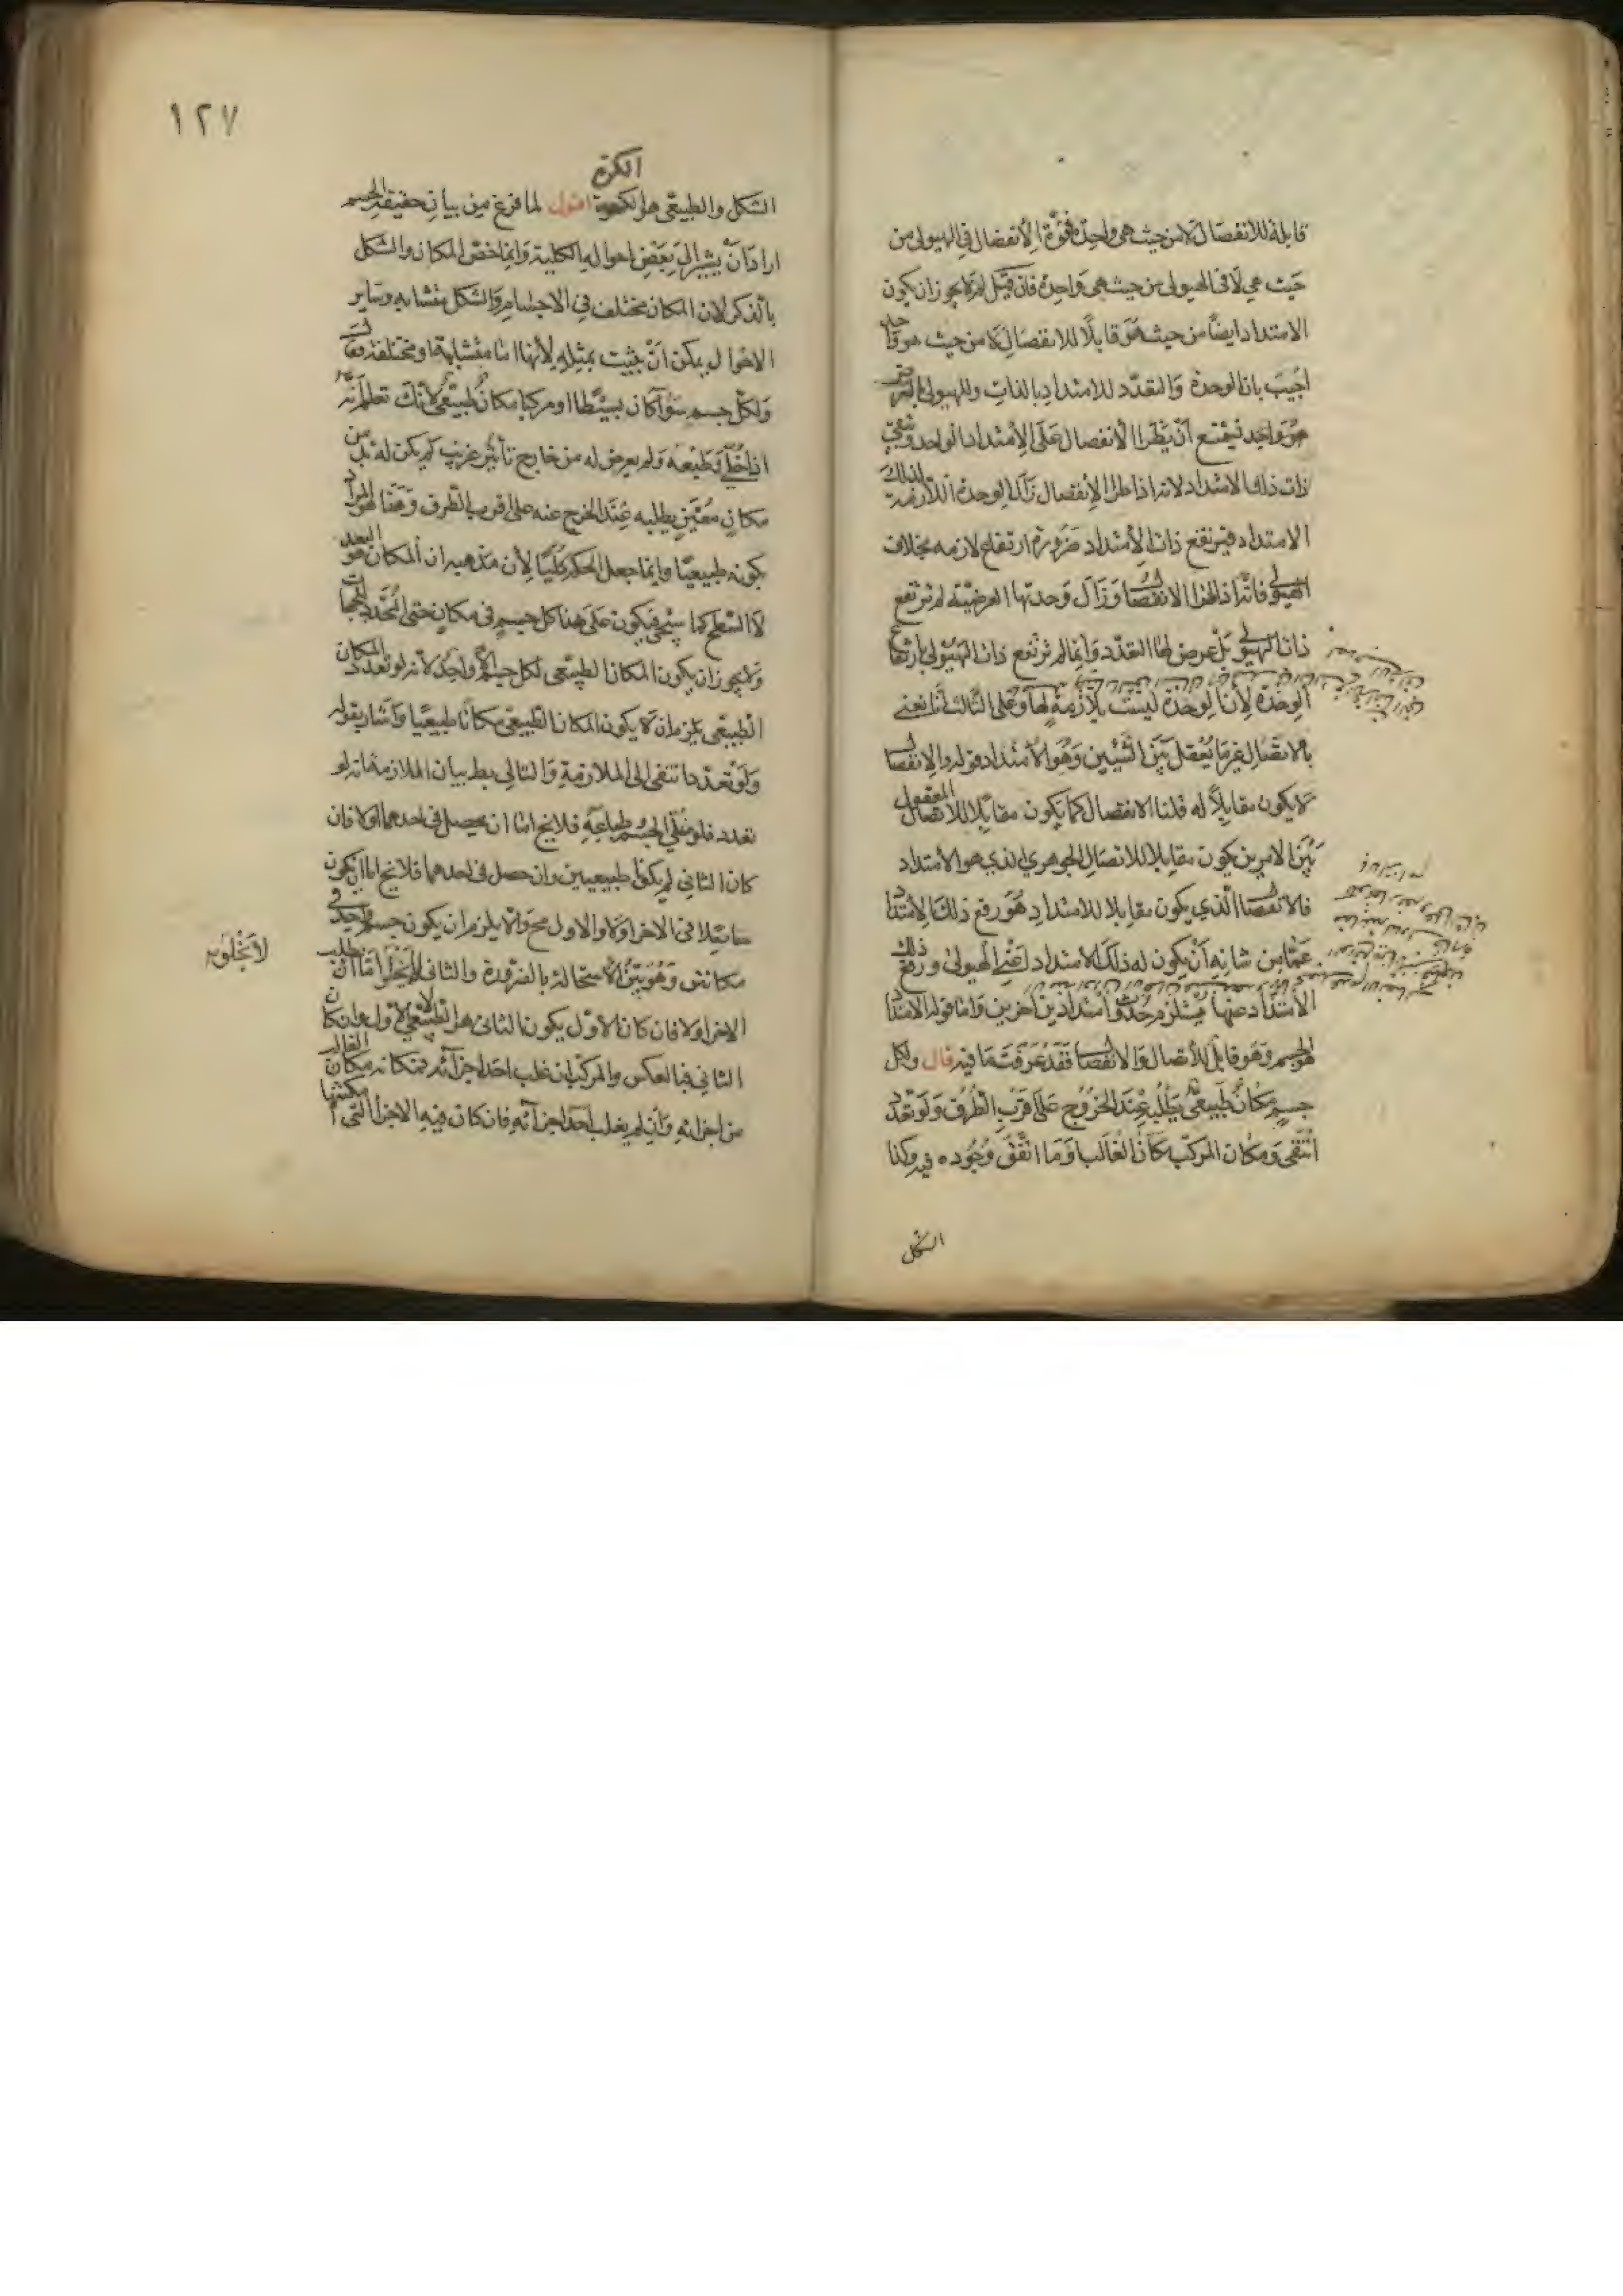 قابلة للانفصال لا من حيث هي واحدة فقوة الانفصال في الهيولى من
حيث هي لا في الهيولى من حيث هي واحدة فان قيل لم لا يجوز ان يكون
الامتداد ايضا من حيث هو قابلا للانفصال لا من حيث هو واحد
اجيب بان الوحدة والتعدد للامتداد بالذات وللهيولى بالعرض
هو واحد فيمتنع ان يطرا الانفصال على الامتداد الواحد وتبقى
ذات ذلك الامتداد لانه اذا طرا الانفصال زال الوحدة اللازمة لذلك
الامتداد فيرتفع ذات الامتداد ضرورة ارتفاع لازمه بخلاف
الهيولى فانه اذا طرا الانفصال وزال وحدتها العرضية لم ترتفع
ذات الهيولى بل عرض لها التعدد وانما لم ترتفع ذات الهيولى بارتفاع
الوحدة لان الوحدة ليست بلازمة لها وعلى الثالث انا نعني
بالاتصال غير ما يعقل بين الشيئين وهو الامتداد قوله والانفصال
لا يكون مقابلا له قلنا الانفصال كما يكون مقابلا للاتصال المعقول
بين الامرين يكون مقابلا للاتصال الجوهري الذي هو الامتداد
فالانفصال الذي يكون مقابلا للامتداد هو رفع ذلك الامتداد
عما من شانه ان يكون له ذلك الامتداد اعني الهيولى ورفع ذلك
الامتداد عنها يستلزم حدوث امتدادين اخرين واما قوله الامتداد
هو الجسم وهو قابل للاتصال والانفصال فقد عرفت ما فيه قال ولكل
جسم مكان طبيعي يطلبه عند الخروج على اقرب الطرق ولو تعدد
انتفى ومكان المركب مكان الغالب او ما اتفق وجوده فيه وكذا
الشكل
١٢٧
الكرة
الشكل والطبيعي هو الكرة اقول لما فرغ من بيان حقيقة الجسم
اراد ان يشير الى بعض احواله الكلية وانما خص المكان والشكل
بالذكر لان المكان مختلف في الاجسام والشكل متشابه وساير
الاحوال يمكن ان يثبت بمثله لانها اما متشابهة او مختلفة فقال
ولكل جسم سوآ كان بسيطا او مركبا مكان طبيعي لانك تعلم انه
اذا خلي وطبعه ولم يعرض له من خارج تأثير غريب لم يكن له بد من
مكان معين يطلبه عند الخرج عنه على اقرب الطرق وهذا هو المراد
بكونه طبيعيا وانما جعل الحكم كليا لان مذهبه ان المكان هو البعد
لا السطح كما سيجي فيكون على هذا كل جسم في مكان حتى المحدد للجهات
ولا يجوز ان يكون المكان الطبيعي لكل جسم الا واحد لانه لو تعدد المكان
الطبيعي يلزم ان لا يكون المكان الطبيعي مكانا طبيعيا واشار بقوله
ولو تعدد انتفى الى الملازمة والتالي بط بيان الملازمة انه لو
تعدد فلو خلي الجسم وطباعه فلا يخ اما ان يحصل في احدهما اولا فان
كان الثاني لم يكونا طبيعيين وان حصل في احدهما فلا يخ اما ان يكون
مائلا الى الاخر اولا والاول مح والا يلزم ان يكون جسم واحد في
مكانين وهو بين الاستحالة بالضرورة والثاني لا يخلوا اما ان يطلب
الاخر اولا فان كان الاول يكون الثاني هو الطبيعي لا الاول وان كان
الثاني فبالعكس والمركب ان غلب احد اجزآئه فمكانه مكان الغالب
من اجزائه وان لم يغلب احد اجزآئه فان كان فيه الاجزا التي امكنتها
لا يخلو